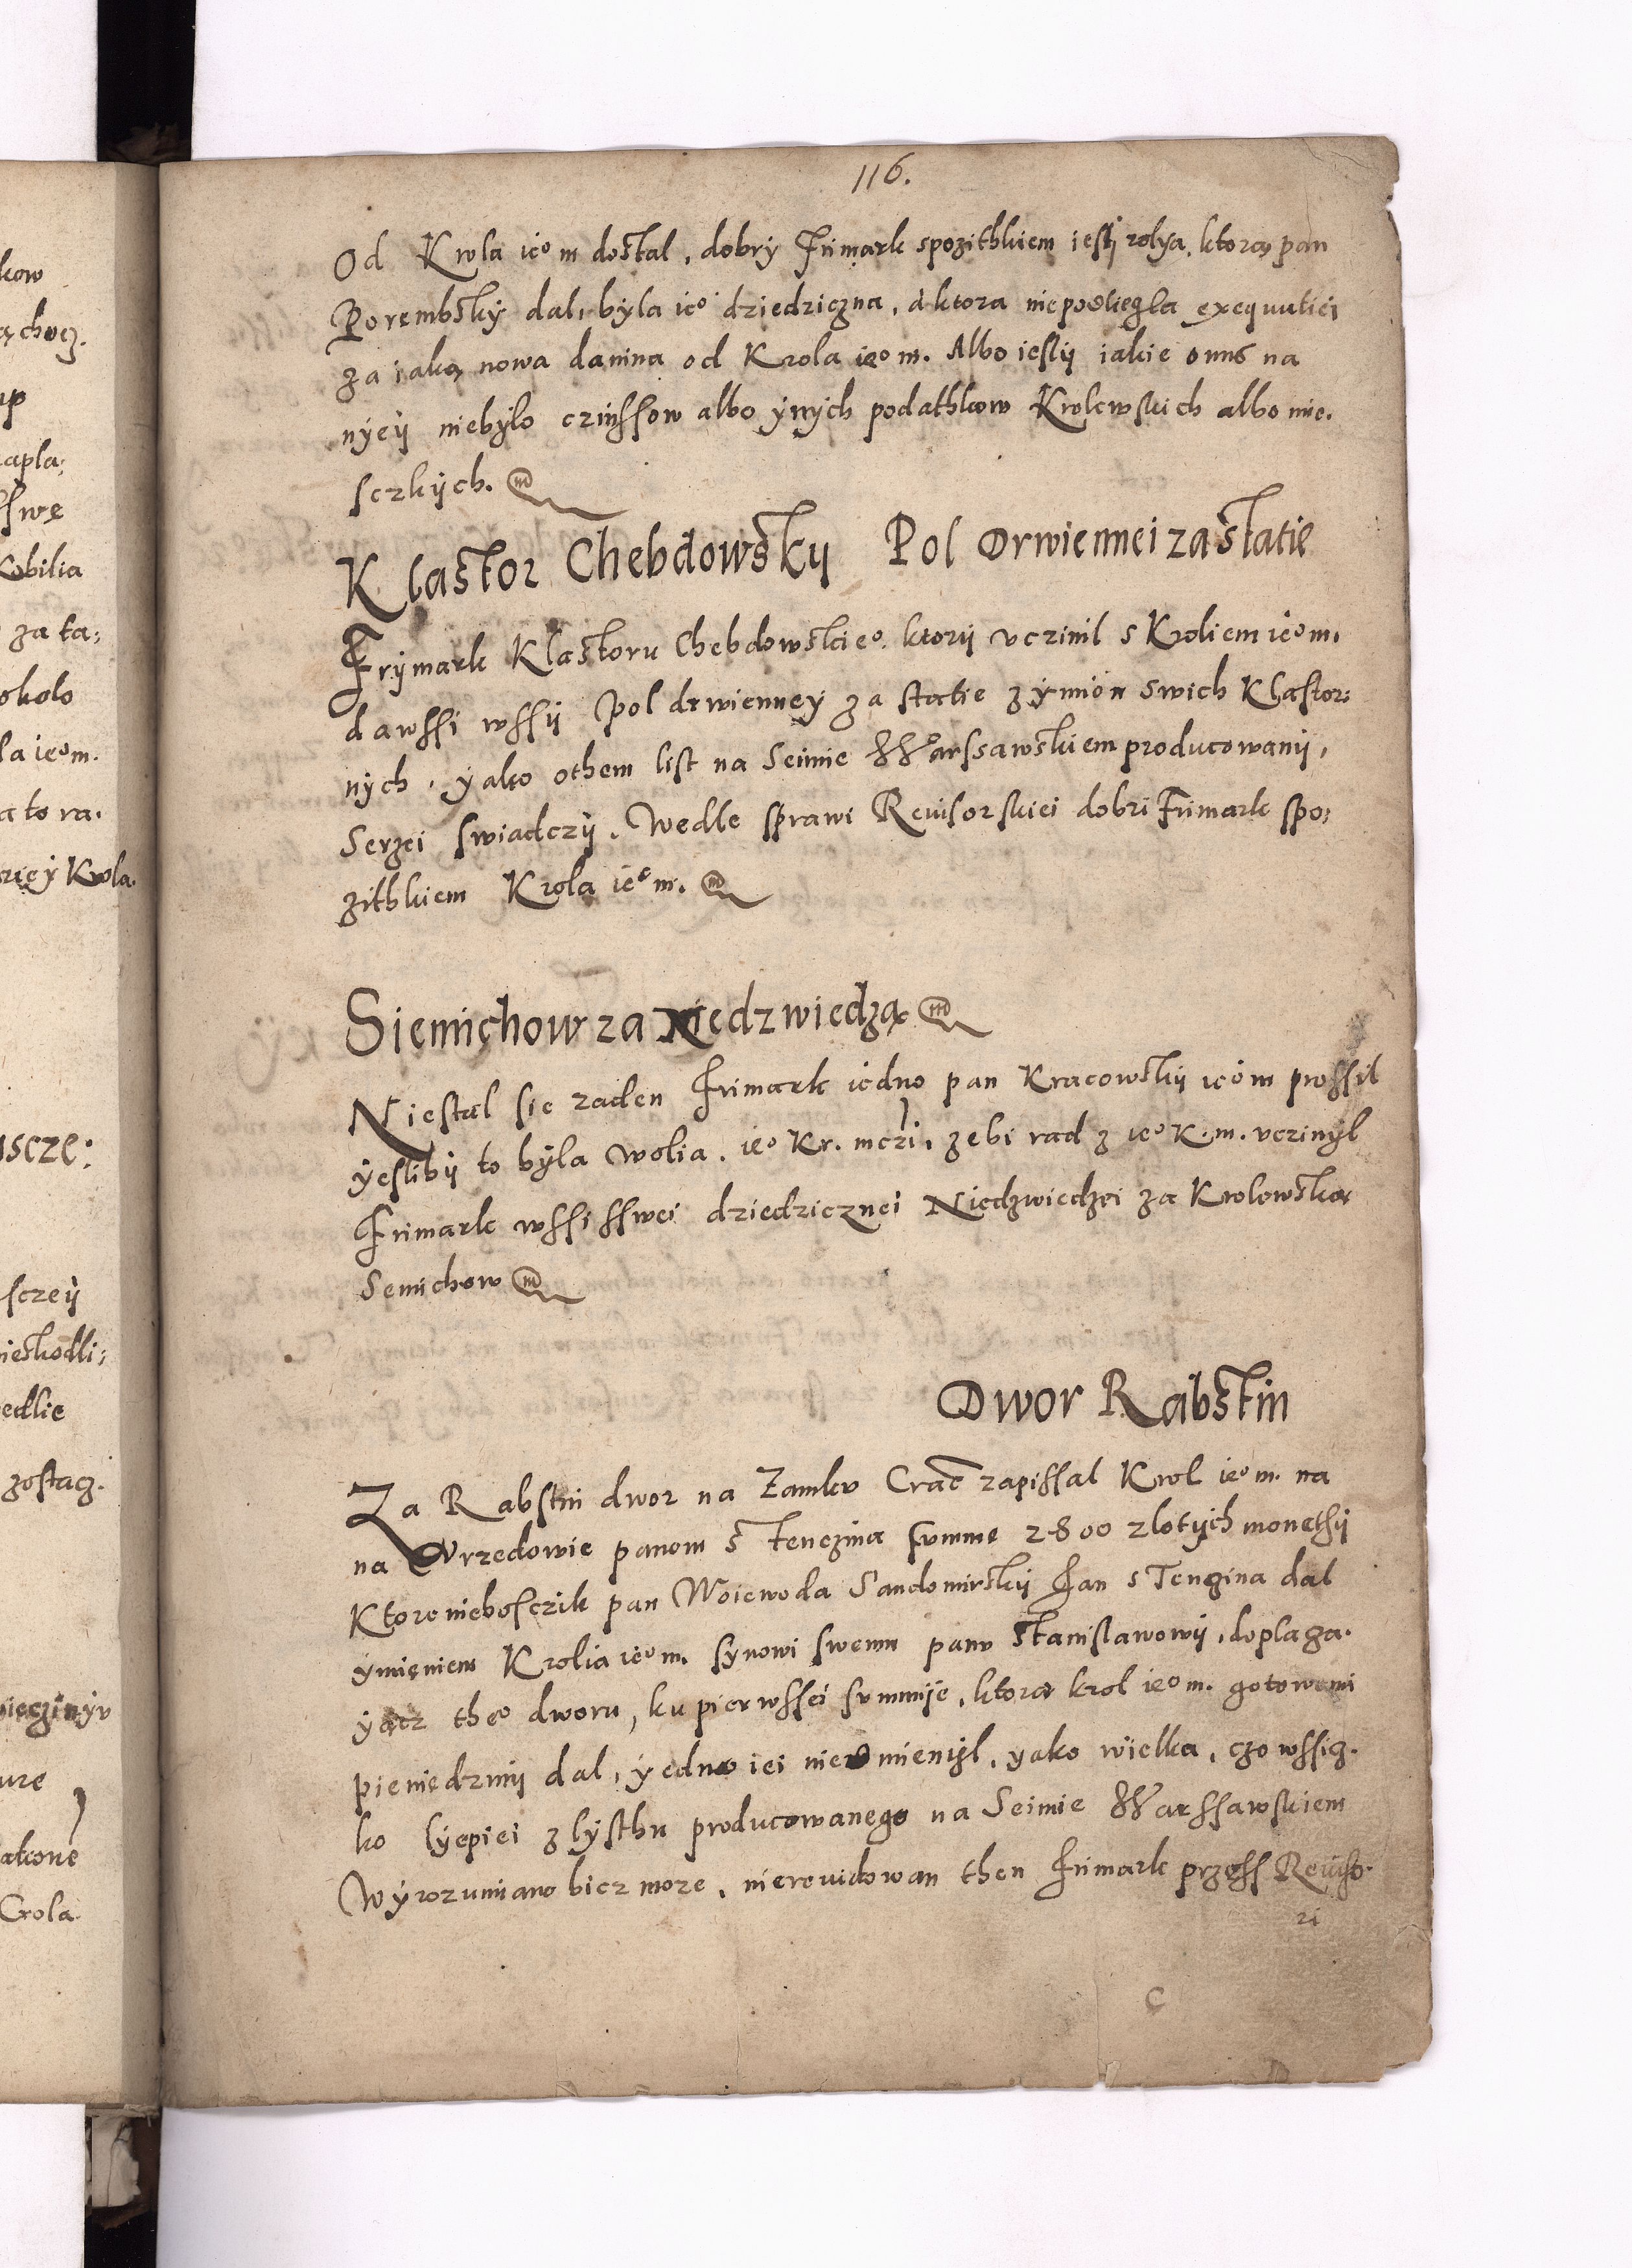 116.
Od Krola ieo m dostal, dobrÿ Frimark spozithkiem iesli rolya, ktorą pan
Porembskÿ dal, bÿla ieo dziedziczna, a ktora niepodliegla exequutiei
za iaką nowa danina od Krola ieo m. Albo ieslÿ iakie onus na
nÿeÿ niebÿlo czinssow albo ÿnÿch podathkow Krolewskich albo mie.
sczkÿch.
Klastor Chebdowskÿ Pol Drwiennei za statie
Frÿmark Klastoru Chebdowskieo. ktorÿ vczinil s Kroliem ieo m.
dawssi wssÿ Pol drwienneÿ za statie z ÿmion swich Klastor:
nÿch, ÿako othem list na Seimie Warssawskiem producowanÿ,
Serzei swiadczÿ. Wedle sprawi Reuisorskiei dobri Frimark spo:
zithkiem Krola ieo m.
Siemichow za Niedzwiedzą
Niestal sie zaden Frimark iedno pan Kracowskÿ ieo m prossil
ÿeslibÿ to bÿla wolia. ieo Kr. mczi, zebi rad z ieo K. m. vczinÿl
Frimark wssi sswei dziedzicznei Niedzwiedzei za Krolewską
Semichow
Dwor Rabstin
Za Rabstin dwor na Zamku Crac zapissal Krol ieo m. na
na Vrzedowie panom s Tenczina summe 2800 zlotÿch monethÿ
Ktore nieboszczik pan Woiewoda Sandomirskÿ Jan s Tenczina dal
ÿmieniem Krolia ieo m. synowi swemu panu Stanislawowÿ, doplaza.
ÿącz theo dworu, ku pierwssei summÿe, ktorą krol ieo m. gotowemi
pieniedzmÿ dal, ÿedno iei nieomienÿl, ÿako wielka, czo wssiz.
ko lÿepiei z lÿsthu producowanego na Seimie Warssawskiem
Wÿrozumiano bicz moze, nierewidowan then Frimark przess Reuiso.
ri